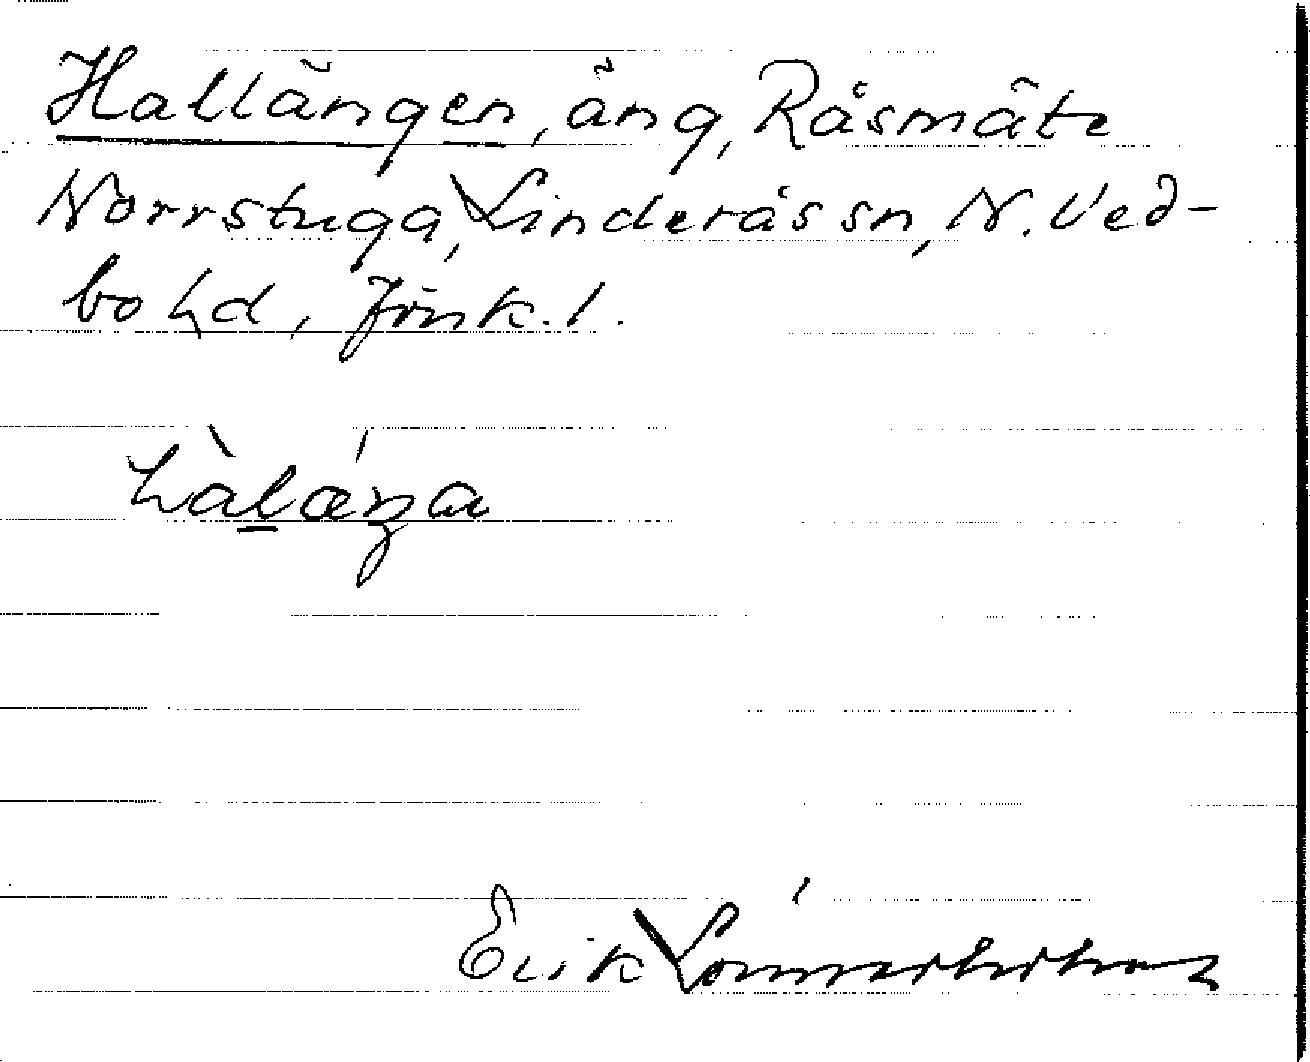 Hallängen, äng, Råsmäte
Norrstuga, Linderås sn, N. Ved-
bo hd, Jönk. l.
hàlǽŋa
Erik